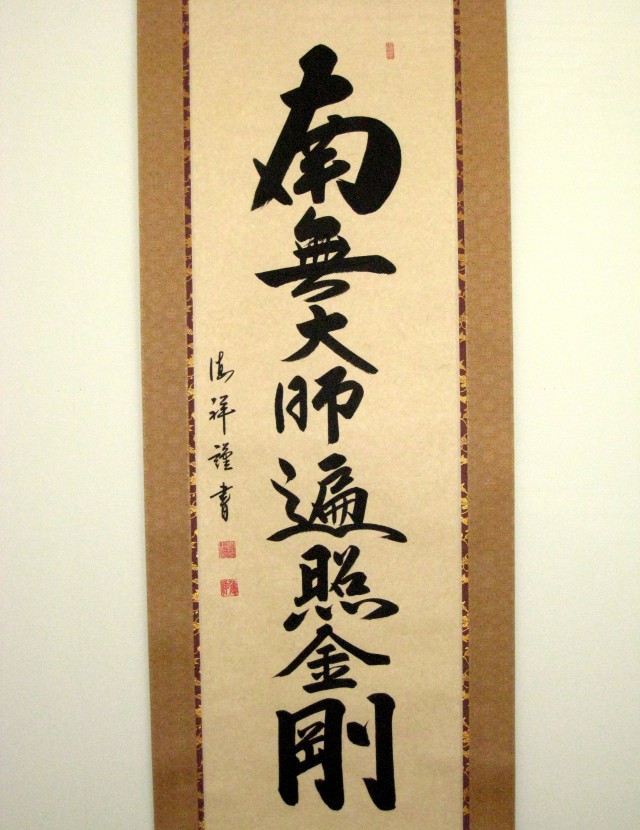 南無大師遍照金剛
祥謹書